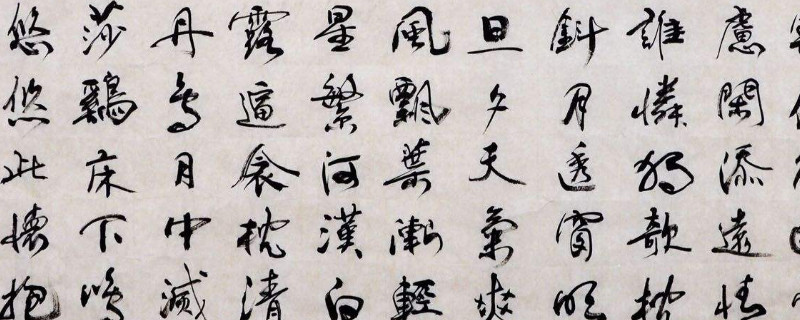 慮閑添遠情
誰憐獨欹枕
斜月透窗明
旦夕天氣爽
風飄葉漸輕
星繁河漢白
露逼衾枕清
丹鳥月中滅
莎鷄床下鳴
悠悠此懷抱